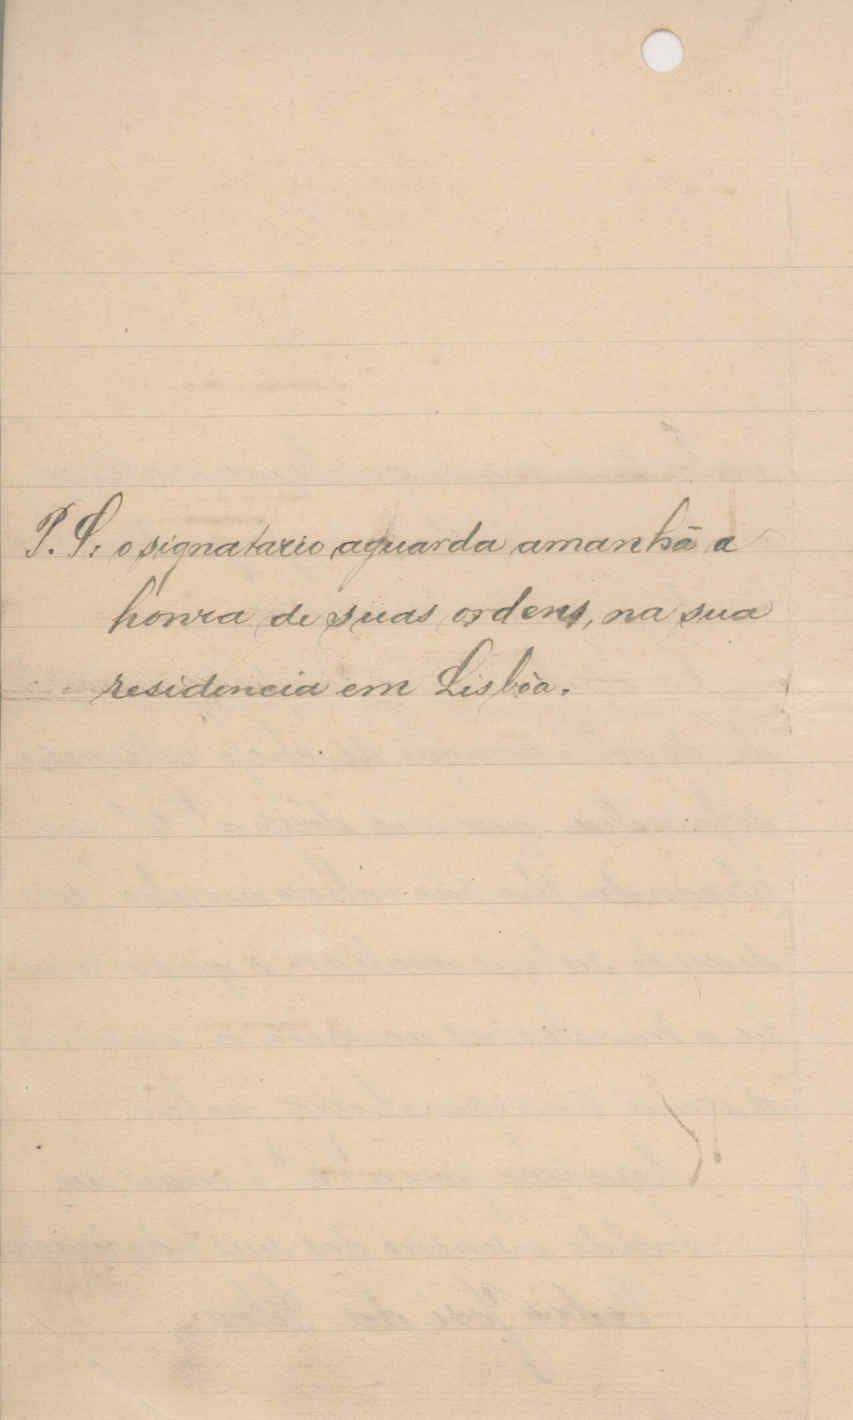 P. S. o signatario aguarda amanhã a
honra de suas ordens, na sua
residencia em Lisbôa.